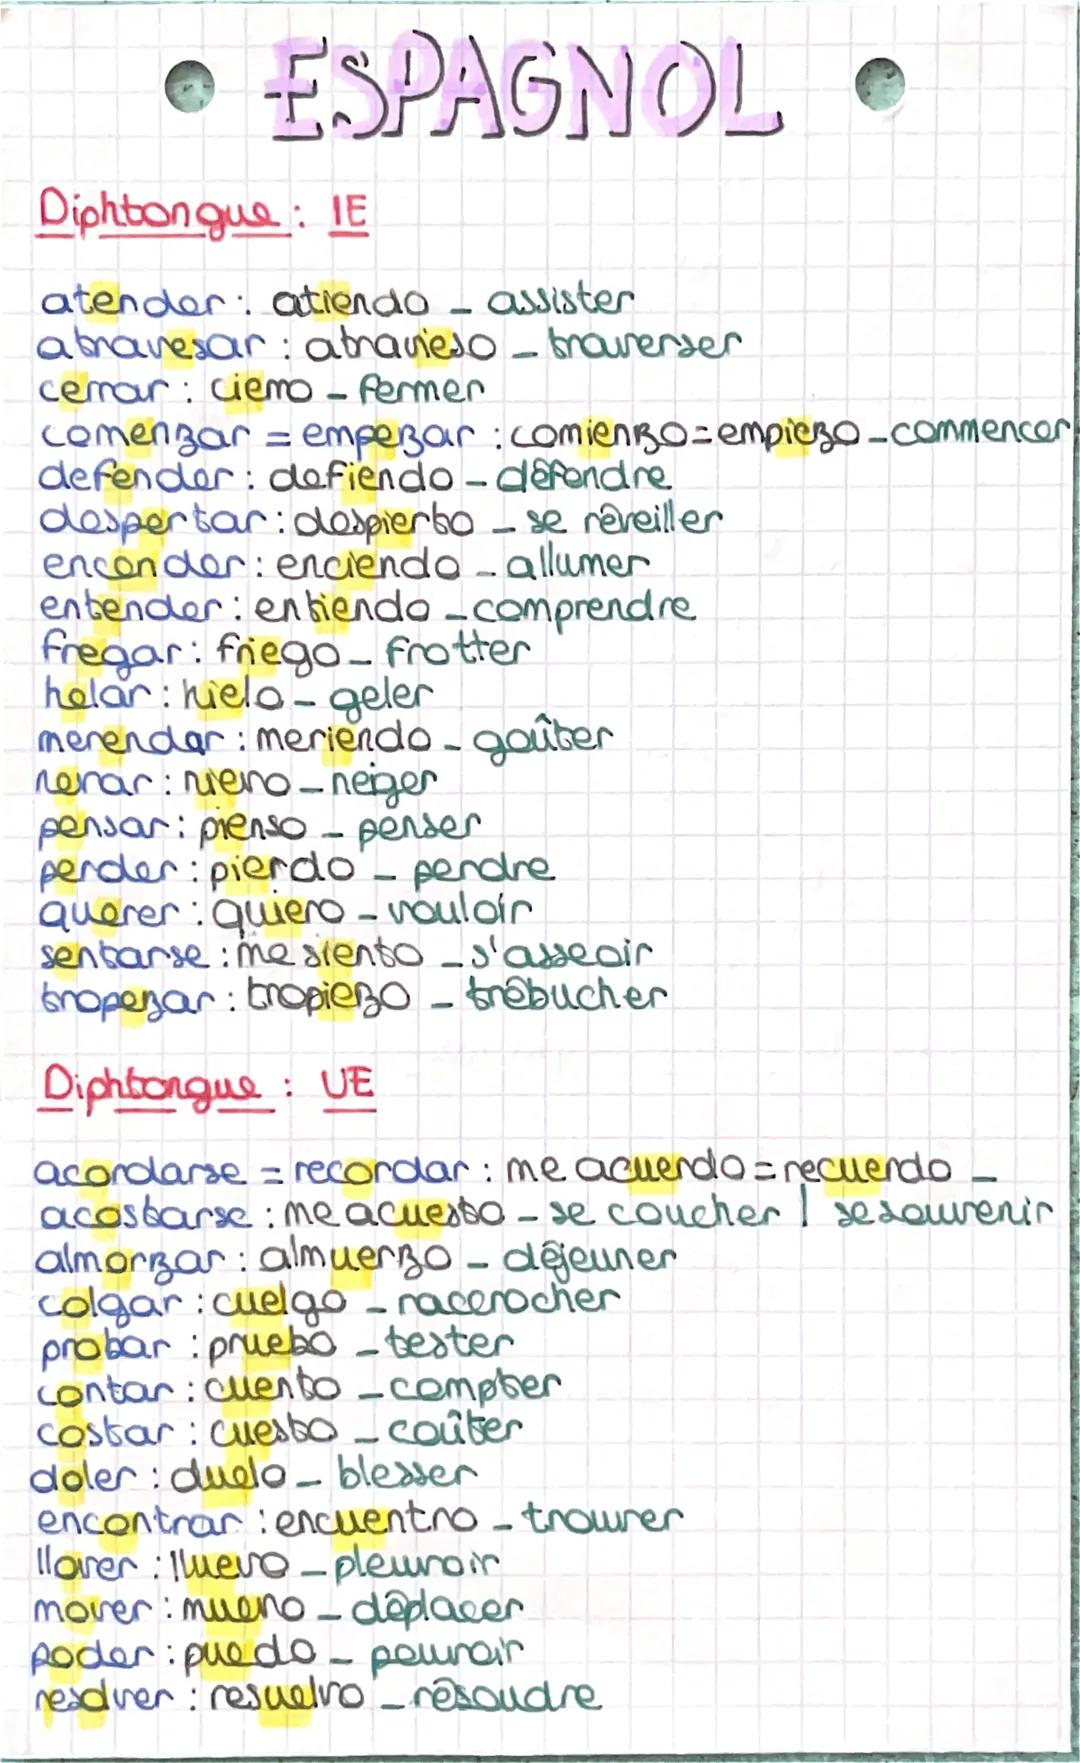 ESPAGNOL
Diphtongue : IE
atender : atiendo - assister
atravesar : atravieso - traverser
cerrar : cierro - fermer
comenzar = empezar : comienzo = empiezo - commencer
defender : defiendo - défendre
despertar : despierto - se réveiller
encender : enciendo - allumer
entender : entiendo - comprendre
fregar : friego - frotter
helar : hielo - geler
merendar : meriendo - goûter
nevar : nievo - neiger
pensar : pienso - penser
perder : pierdo - perdre
querer : quiero - vouloir
sentarse : me siento - s'asseoir
tropezar : tropiezo - trébucher
Diphtongue : UE
acordarse = recordar : me acuerdo = recuerdo -
acostarse : me acuesto - se coucher | se souvenir
almorzar : almuerzo - déjeuner
colgar : cuelgo - raccrocher
probar : pruebo - tester
contar : cuento - compter
costar : cuesto - coûter
doler : duelo - blesser
encontrar : encuentro - trouver
llover : lluevo - pleuvoir
mover : muevo - déplacer
poder : puedo - pouvoir
resolver : resuelvo - résoudre